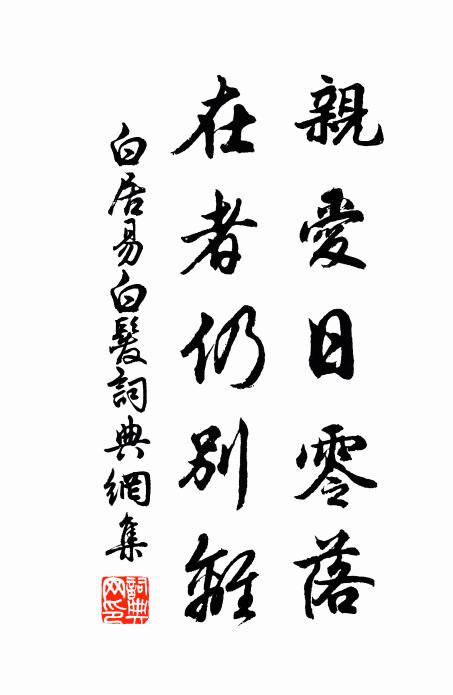 親愛日零落
在者仍別離
白居易白髮詞典網集
詞典
网印